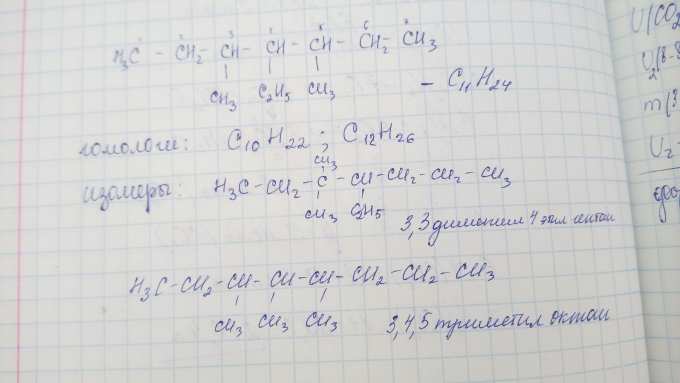 H₃C - CH₂ - CH - CH - CH - CH₂ - CH₃
CH₃ C₂H₅ CH₃
- C₁₁H₂₄
гомологи: C₁₀H₂₂ ; C₁₂H₂₆
CH₃
изомеры: H₃C - CH₂ - C - CH - CH₂ - CH₂ - CH₃
CH₃ C₂H₅
3,3 диметил 4 этил
H₃C - CH₂ - CH - CH - CH - CH₂ - CH₂ - CH₃
CH₃ CH₃ CH₃
3,4,5 триметил октан
U/CO₂